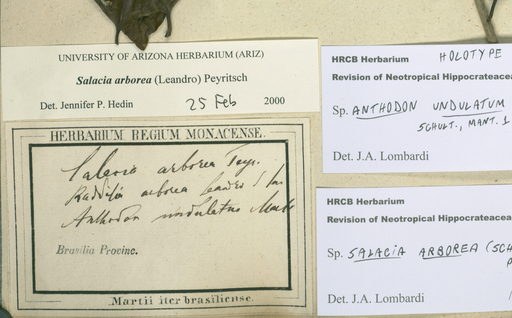 UNIVERSITY OF ARIZONA HERBARIUM (ARIZ)
Salacia arborea (Leandro) Peyritsch
Det. Jennifer P. Hedin 25 Feb 2000
HERBARIUM REGIUM MONACENSE.
Salacia arborea Peyr.
Raddisia arborea Leandro
Anthodon undulatus Mart
Brasilia Provinc.
Martii iter brasiliense.
HRCB Herbarium HOLOTYPE
Revision of Neotropical Hippocrateacea
Sp. ANTHODON UNDULATUM
SCHULT., MANT. 1
Det. J.A. Lombardi
HRCB Herbarium
Revision of Neotropical Hippocrateacea
Sp. SALACIA ARBOREA (SCH
Det. J.A. Lombardi